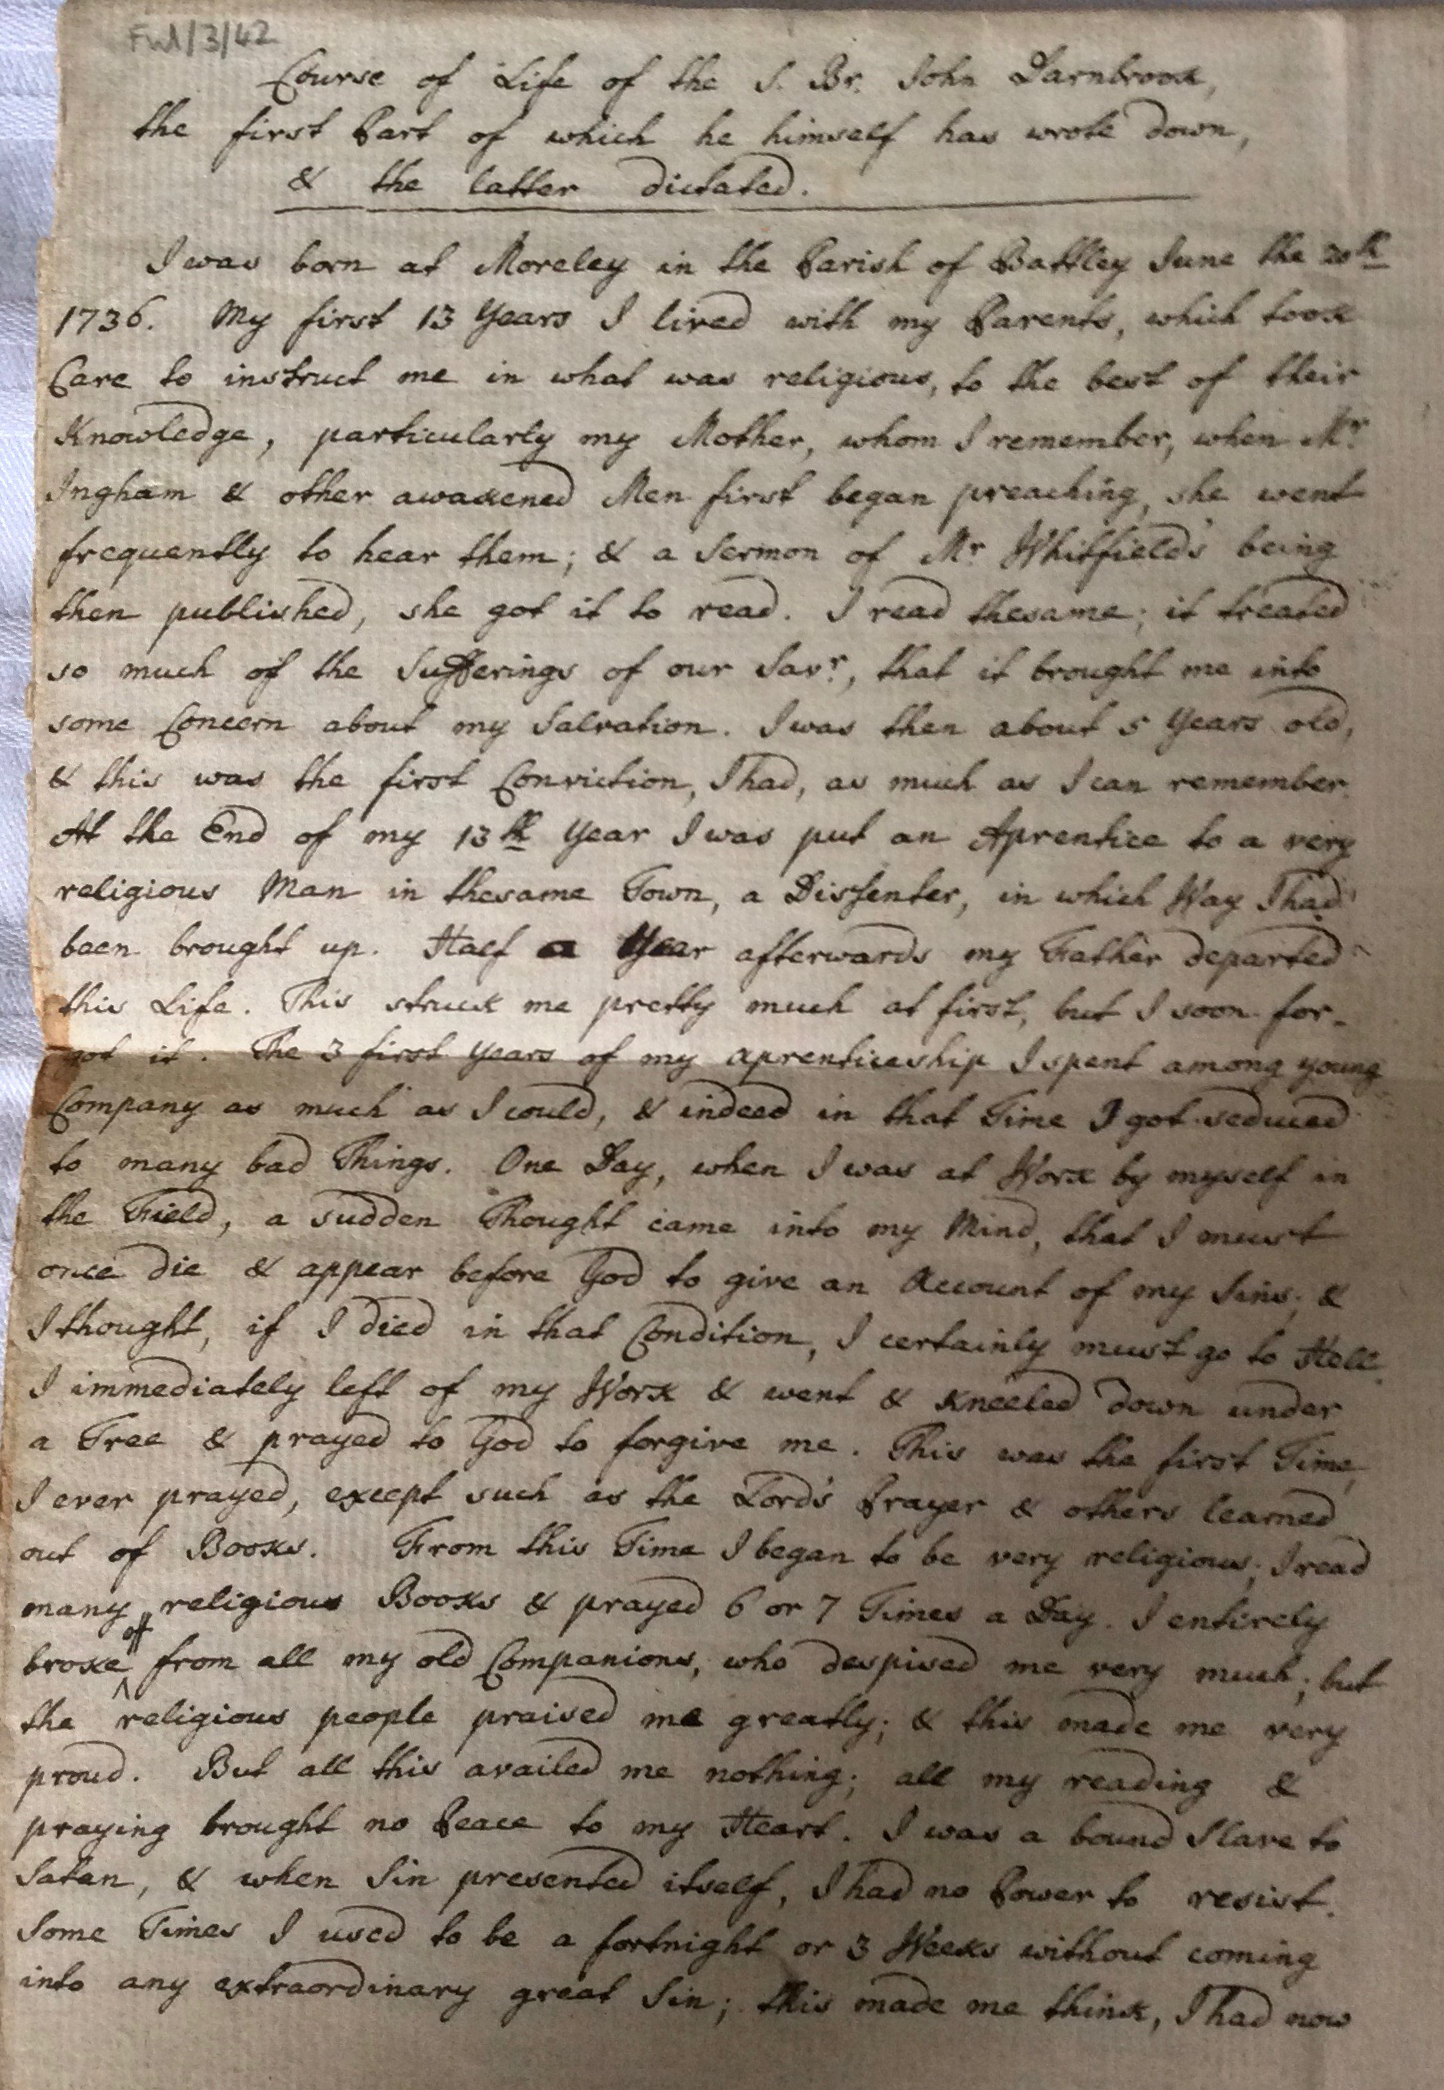 FUL/3/42
Course of Life of the S. Br. John Darnbrook,
the first Part of which he himself has wrote down,
& the latter dictated.
I was born at Moreley in the Parish of Battley June the 20th
1736. My first 13 Years I lived with my Parents, which took
Care to instruct me in what was religious, to the best of their
Knowledge, particularly my Mother, whom I remember, when Mr
Ingham & other awakened Men first began preaching, she went
frequently to hear them; & a Sermon of Mr Whitfield's being
then published, she got it to read. I read thesame; it treated
so much of the Sufferings of our Savr, that it brought me into
some Concern about my Salvation. I was then about 5 Years old,
& this was the first Conviction, I had, as much as I can remember.
At the End of my 13th Year I was put an Aprentice to a very
religious Man in thesame Town, a Dissenter, in which Way I had
been brought up. Half a Year afterwards my Father departed
this Life. This struck me pretty much at first, but I soon for-
got it. The 3 first Years of my aprenticeship I spent among young
Company as much as I could, & indeed in that Time I got seduced
to many bad Things. One Day, when I was at Work by myself in
the Field, a sudden Thought came into my Mind, that I must
once die & appear before God to give an Account of my Sins; &
I thought, if I died in that Condition, I certainly must go to Hell.
I immediately left of my Work & went & kneeled down under
a Tree & prayed to God to forgive me. This was the first Time,
I ever prayed, except such as the Lord's Prayer & others learned
out of Books. From this Time I began to be very religious; I read
many religious Books & prayed 6 or 7 Times a Day. I entirely
broke off from all my old Companions, who despised me very much; but
the religious people praised me greatly; & this made me very
proud. But all this availed me nothing; all my reading &
praying brought no Peace to my Heart. I was a bound Slave to
Satan, & when Sin presented itself, I had no Power to resist.
Some Times I used to be a fortnight or 3 Weeks without coming
into any extraordinary great Sin; this made me think, I had now